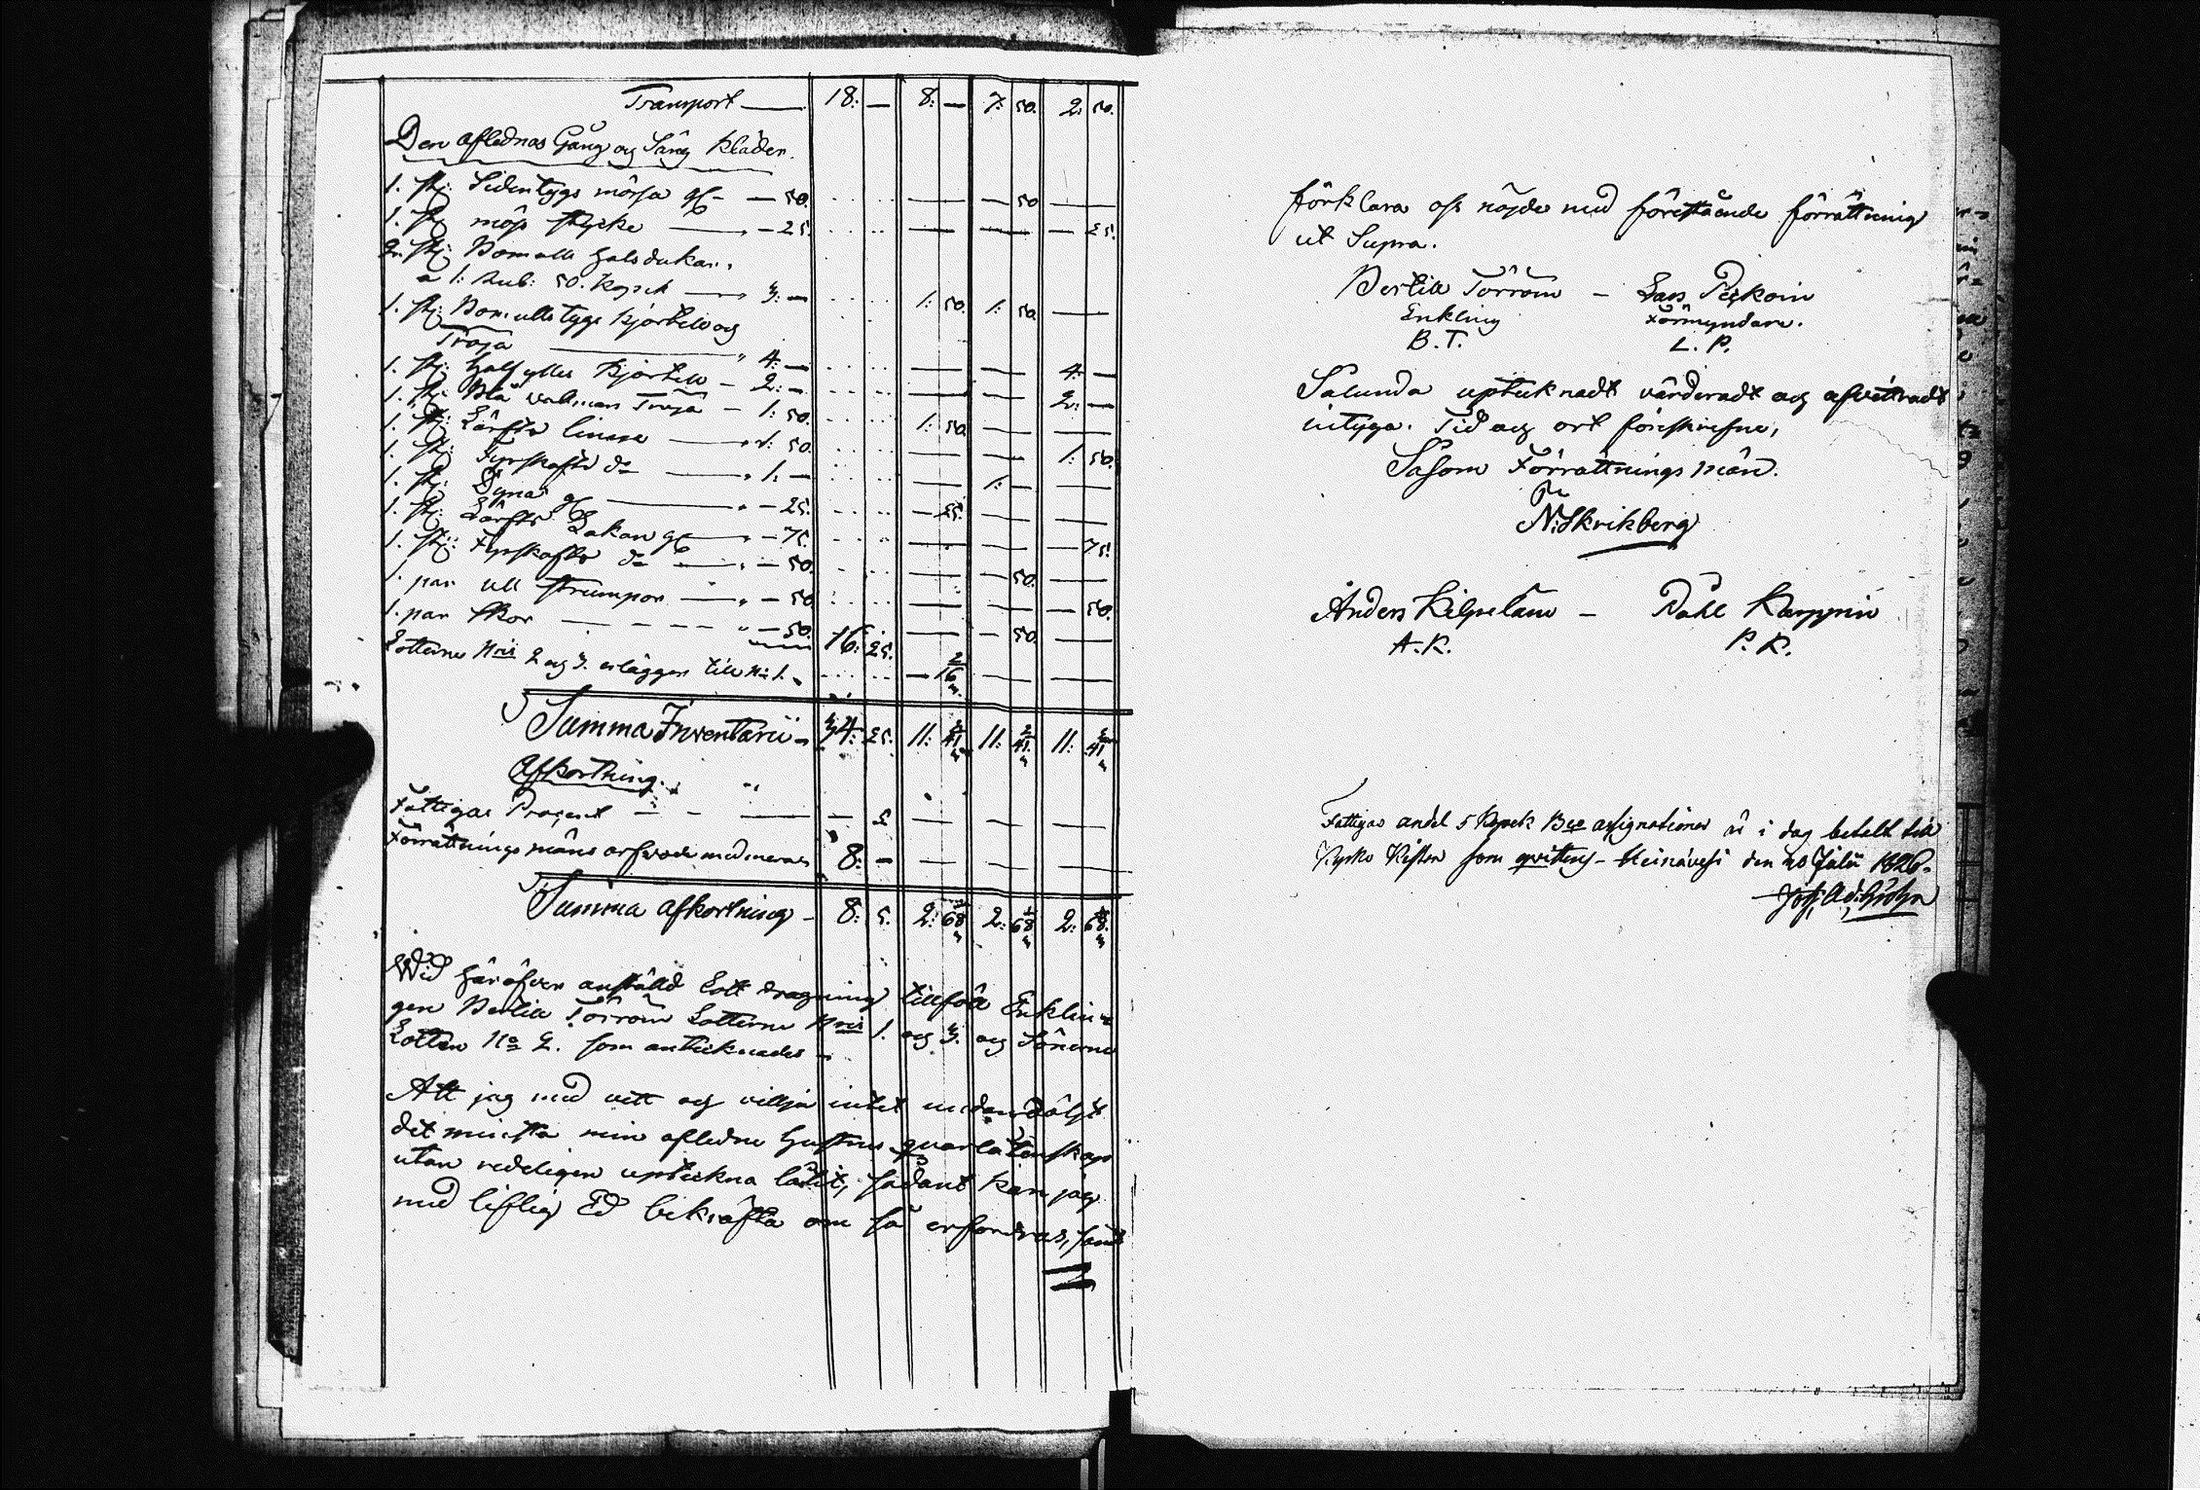 Transport — 18: — 8: — 7: 50. 2: 50.
Den aflednas Gång og Säng kläder.
1. st: Sidentygs mössa — 50. — — 50 —
1. st: möss stycke — 25. — — — 25.
2. st: Bomulls halsdukar,
a 1: Rub: 50. Kopek — 3: — 1: 50. 1: 50. —
1. st: Bomullstygs kjortell og
Tröja — 4: — — — 4: —
1. st: Halfylles kjortell — 2: — — — 2: —
1. st: Blå valmars Tröja — 1: 50. 1: 50. — —
1. st: Lärfts linne — 1: 50. — — 1: 50.
1. st: Fyrskafts do — 1: — — 1: — —
1. st: Dynar — 25. — 25. — —
1. st: Lärfts Lakan — 75. — — — 75.
1. st: Fyrskafts do — 50. — — 50. —
1. par ull strumpor — 50 — — — 50.
1. par skor — 50. 16: 25. — — 50. —
Lotterne Nris 2 og 3. erlägger till No 1. — 16 2/3 — —
Summa Inventarii — 34: 25. 11: 41 2/3 11: 41 2/3 11: 41 2/3
Afkortning.
Fattigas Procent — — 5 — — —
Förrättnings mäns arfvode med meras 8: —
Summa afkortning — 8: 5. 2: 68 1/3 2: 68 1/3 2: 68 1/3
Wid häröfver anställd Lott dragning tillföll Enklin-
gen Bertill Törröin Lotterne Nris 1. og 3. og Sönerne
Lotten No 2. som antecknades —
Att jag med vett og villja intet undandöljt
det minsta min afledne Hustrus quarlåtenskap
utan redeligen upteckna låtit, sådant kan jag
med liflig Ed bekräfta om så erfordras, samt
förklara oss nöjde med förestående förrättning
ut Supra.
Bertill Törröin — Lars Peskoin
Enkling Förmyndare.
B. T. L. P.
Sålunda uptecknadt värderadt og afvittradt
intyga. Tid og ort föreskrefne,
Såsom Förrättnings män.
N: Skrikberg
Anders Kilpeläin — Påhl Karppin
A. K. P. K.
Fattigas andel 5 Kopek Bco assignationer är i dag betalt till
Kyrko Kistan som qvitteras — Heinävesi den 20 Julii 1826.